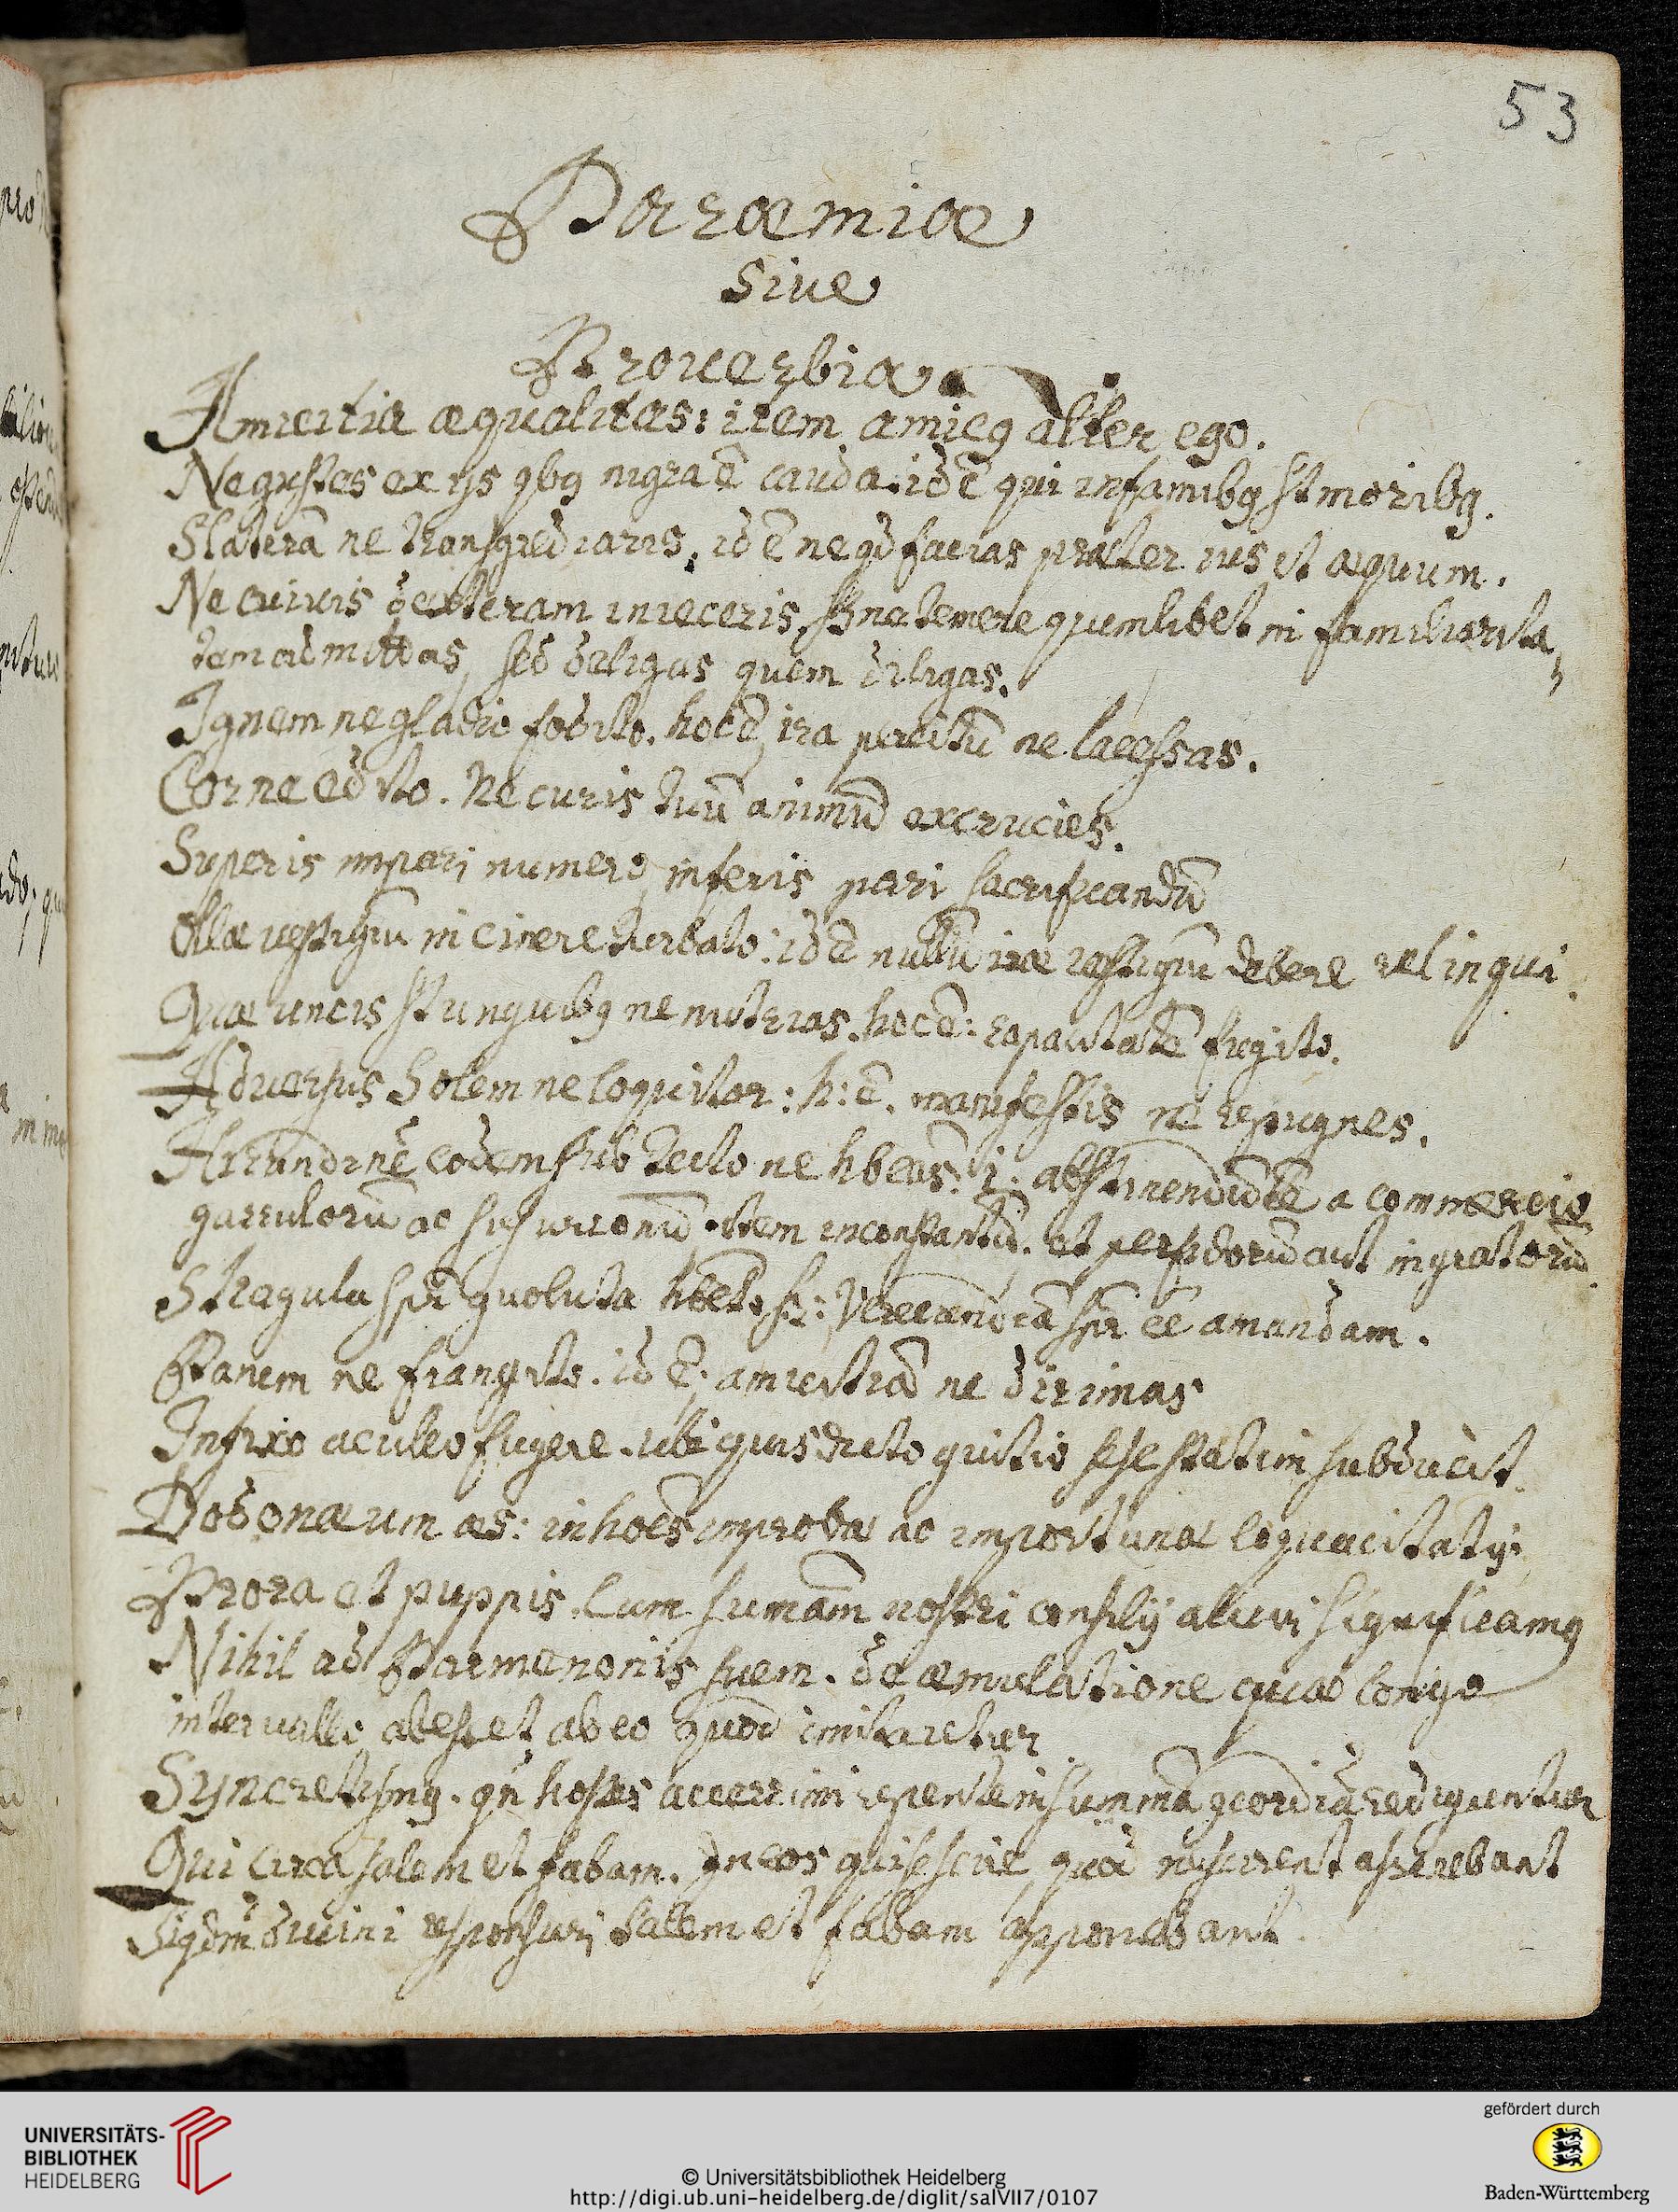 53
Paræmiæ
siue
Prouerbia.
Amicitia æqualitas: item amicꝰ alter ego.
Ne gustes ex ijs qbꝰ nigra ē cauda. id ē qui infamibꝰ st moribꝰ.
Staterā ne transgrediaris. id ē ne qd facias præter ius et æquum.
Ne cuiuis dexteram inieceris, ne temere quemlibet in familiarita,
tem admittas, sed deligas quem diligas.
Ignem ne gladio fodito. hoc ē, ira percitū ne lacessas.
Cor ne edito. Ne curis tuū animū excrucies.
Superis impari numero, inferis pari sacrificandū
Ollæ vestigiū in cinere turbato: id ē nullū iræ vestigiū debere relinqui.
Quæ uncis st unguibꝰ ne nutrias. hoc ē: rapacitatē fugito.
Aduersus Solem ne loquitor: h: ē. manifestis ne repugnes.
Hirundinē eodem sub tecto ne hbeas: i: abstinendū a commercio
garrulorū ac susurronū. item inconstantū. et perfidorū aut ingratorū.
Stragula sp quoluta hbeto: Verecundiā sp eē amandam.
Panem ne frangito. id ē: amicitiā ne dirimas
Infixo aculeo fugere. ubi quis dicto sese statim subducit.
Dodonæum æs: in hoēs improbæ ac importunæ loquacitatis.
Prora et puppis. Cum sumām nostri consilij alicui significamꝰ
Nihil ad Parmenonis suem. de æmulatione quæ longo
interuallo abesset ab eo quod imitaretur
Syncretismꝰ. qn hostes acerrimi repente in summā ꝯcordiā rediguntur
Qui circa salem et fabam. In eos qui se scire, quod nescirent asserebant
Siqdem diuini responsuri salem et fabam apponebant.
pro
UNIVERSITÄTS-
BIBLIOTHEK
HEIDELBERG
© Universitätsbibliothek Heidelberg
http://digi.ub.uni-heidelberg.de/diglit/salVII7/0107
gefördert durch
Baden-Württemberg